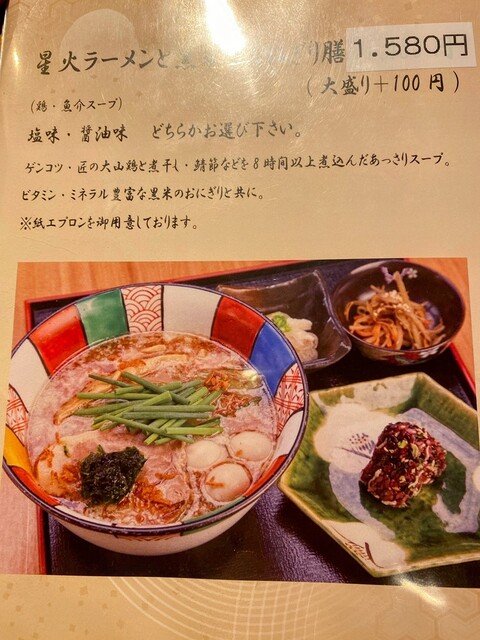 星火ラーメンと黒米おにぎり膳 1.580円
(大盛り+100円)
(鶏・魚介スープ)
塩味・醤油味 どちらかお選び下さい。
ゲンコツ・匠の大山鶏と煮干し・鯖節などを8時間以上煮込んだあっさりスープ。
ビタミン・ミネラル豊富な黒米のおにぎりと共に。
※紙エプロンを御用意しております。